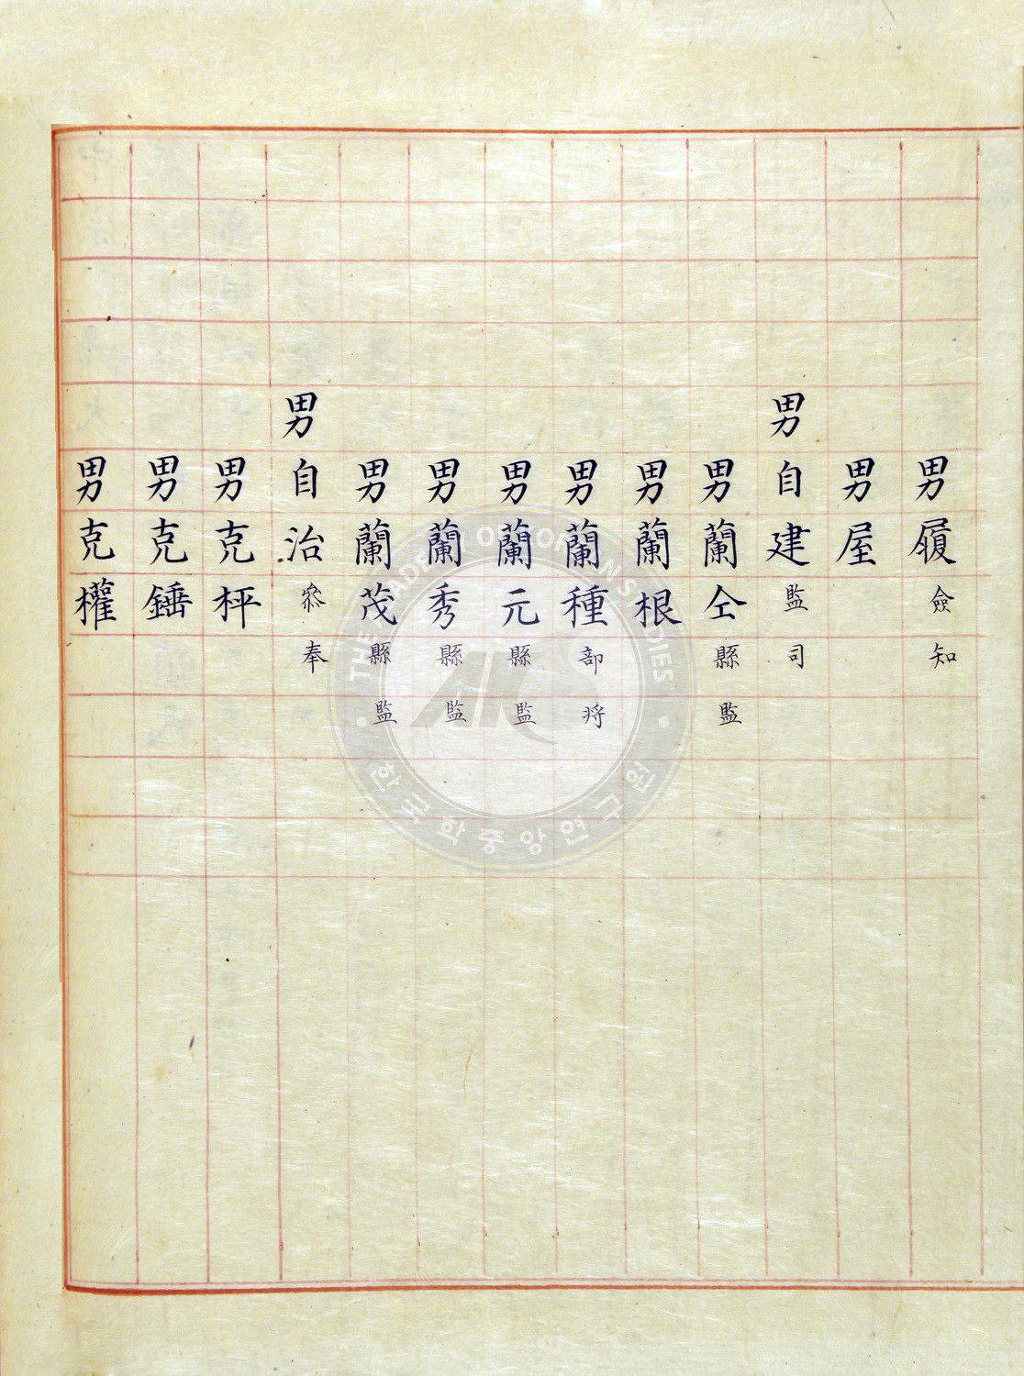 男履僉知
男屋
男自建監司
男蘭仝縣監
男蘭根
男蘭種部將
男蘭元縣監
男蘭秀縣監
男蘭茂縣監
男自治叅奉
男克枰
男克錘
男克權
THE ACADEMY OF KOREAN STUDIES
AKS
한국학중앙연구원